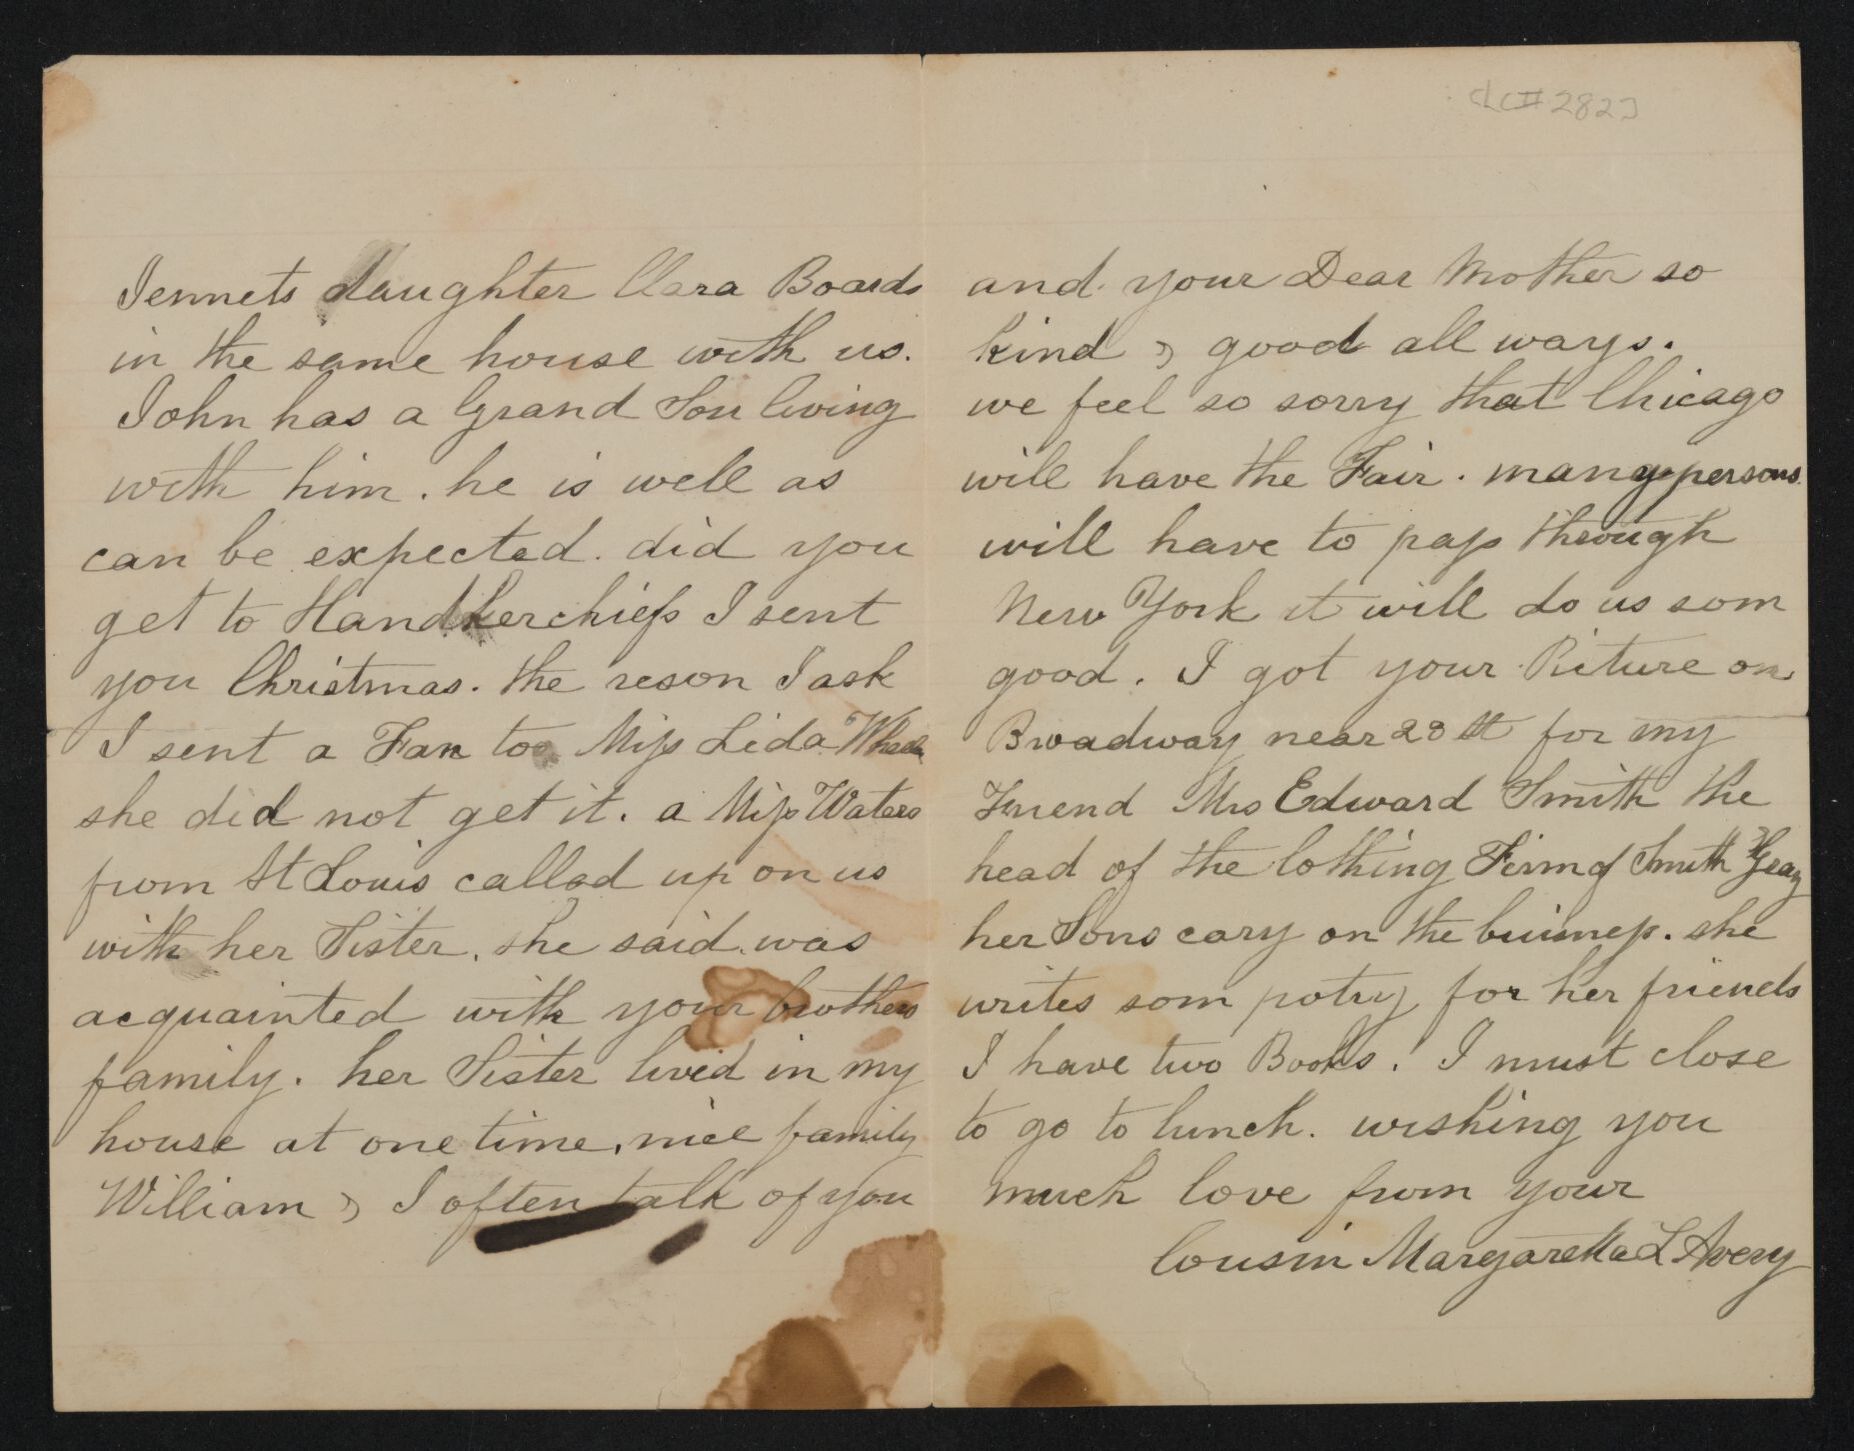 Jennets daughter Clara Boards
in the same house with us.
John has a Grand Son living
with him. he is well as
can be expected. did you
get to Handkerchiefs I sent
you Christmas. the reson I ask
I sent a Fan too Miss Lida
she did not get it. a Miss Waters
from St Louis called up on us
with her Sister. she said was
acquainted with your brothers
family. her Sister lived in my
house at one time. nice family
William & I often talk of you
#2823
and your Dear Mother so
kind & good all ways.
we feel so sorry that Chicago
will have the Fair. many persons
will have to pass through
New York it will do us som
good. I got your Picture on
Broadway near 28th for my
Friend Mrs Edward Smith the
head of the Clothing Firm of Smith Gray
her Sons cary on the buisness. she
writes som potry for her friends
I have two Books. I must close
to go to lunch. wishing you
much love from your
Cousin Margaretta L Avery